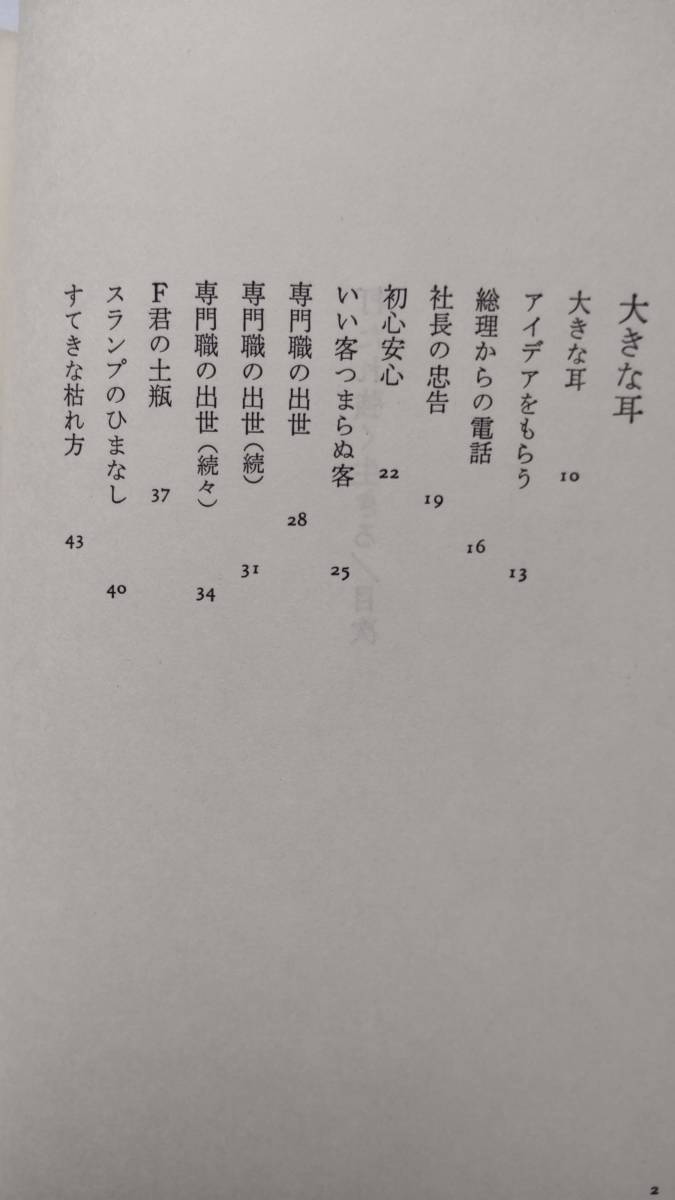 大きな耳
大きな耳 10
アイデアをもらう 13
総理からの電話 16
社長の忠告 19
初心安心 22
いい客つまらぬ客 25
専門職の出世 28
専門職の出世(続) 31
専門職の出世(続々) 34
F君の土瓶 37
スランプのひまなし 40
すてきな枯れ方 43
2